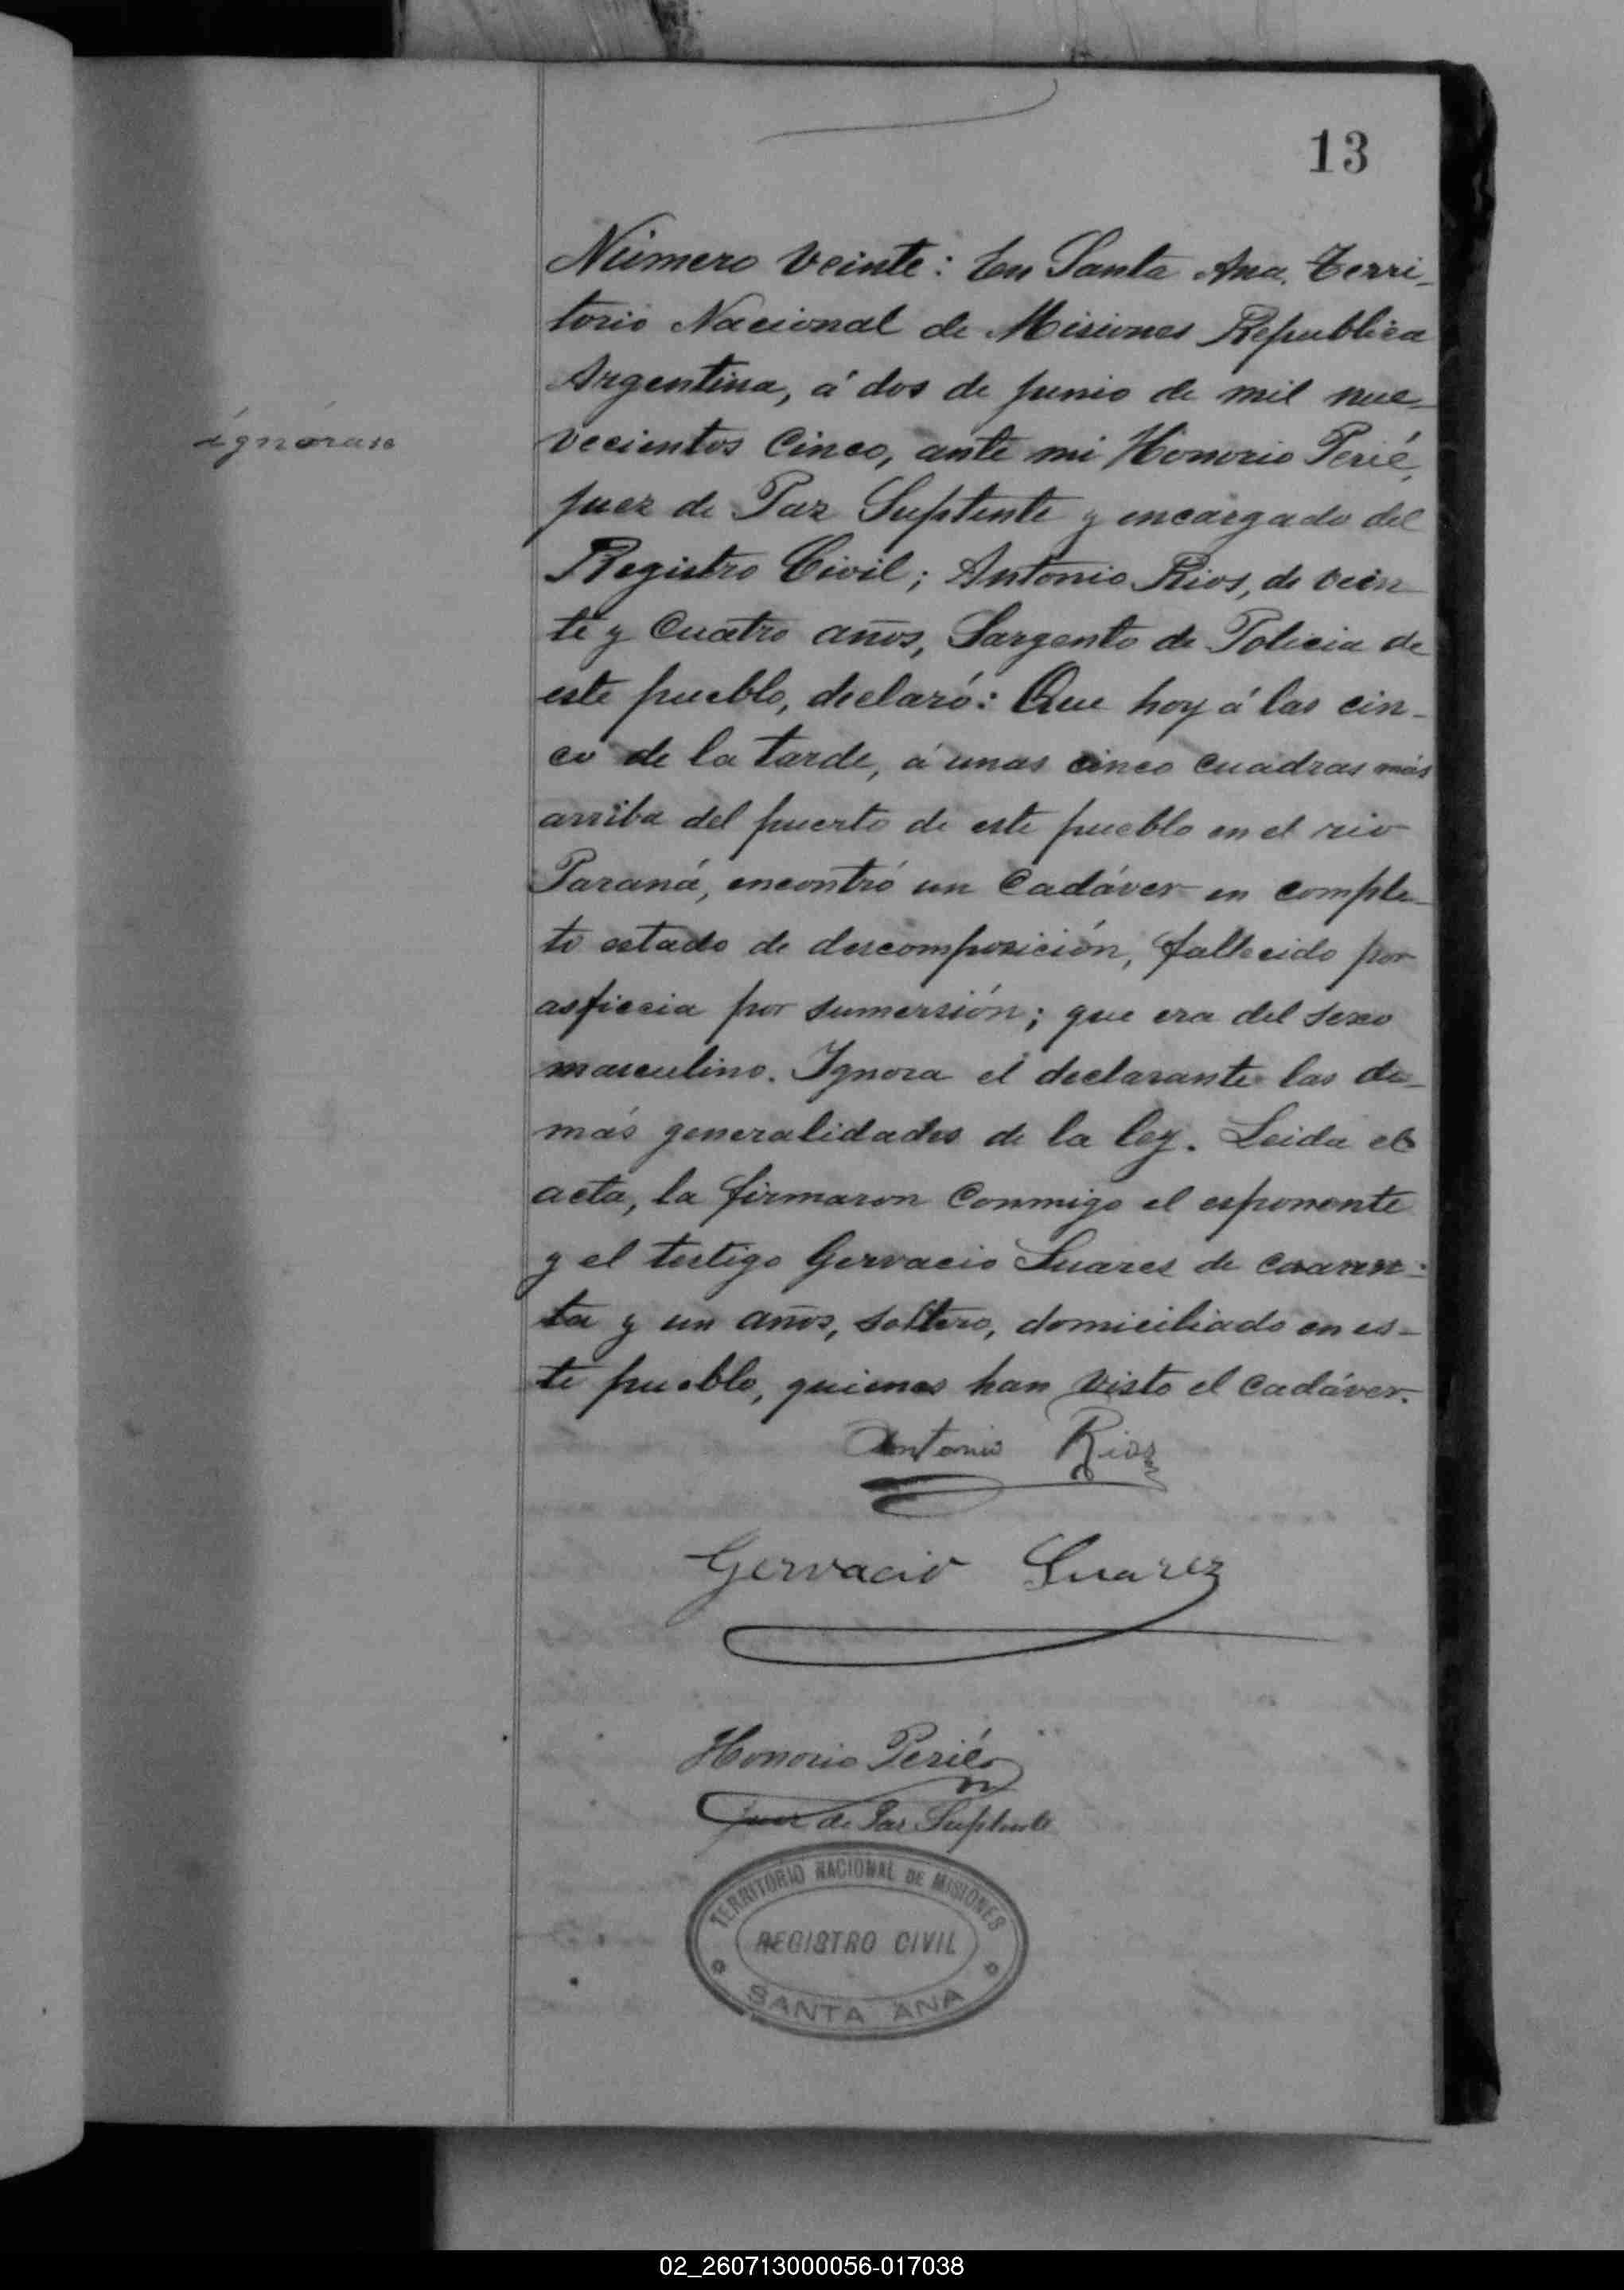 13
Número veinte: En Santa Ana, Terri-
torio Nacional de Misiones Republica
Argentina, á dos de junio de mil nue-
vecientos cinco, ante mi Honorio Perié,
ignórase
juez de Paz Suplente y encargado del
Registro Civil; Antonio Rios, de vein-
te y cuatro años, Sargento de Policia de
este pueblo, declaró: Que hoy á las cin-
co de la tarde, á unas cinco cuadras más
arriba del puerto de este pueblo en el rio
Paraná, encontró un cadáver en comple-
to estado de descomposición, fallecido por
asficcia por sumersión; que era del sexo
masculino. Ignora el declarante las de-
más generalidades de la ley. Leida el
acta, la firmaron conmigo el esponente
y el testigo Gervacio Suares de cuaren-
ta y un años, soltero, domiciliado en es-
te pueblo, quienes han visto el cadáver.
Antonio Rios
Gervacio Suarez
Honorio Perié
Juez de Paz Suplente
TERRITORIO NACIONAL DE MISIONES
REGISTRO CIVIL
SANTA ANA
02_260713000056-017038